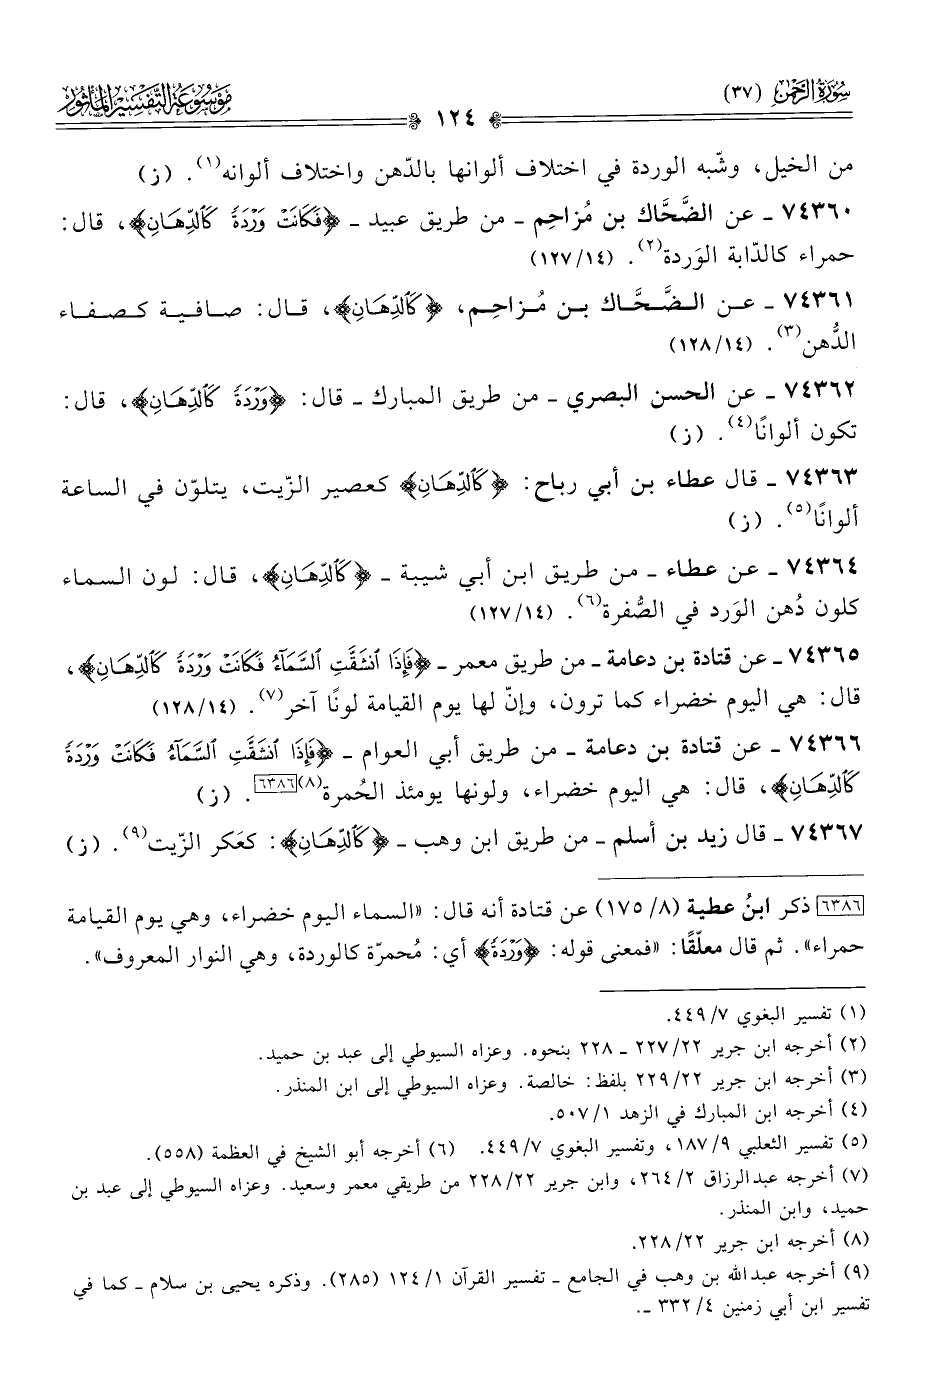 سُورَةُ الرَّحْمٰن (٣٧)
١٢٤
مَوْسُوعَةُ التَّفْسِيرِ المَأْثُور
من الخيل، وشّبه الوردة في اختلاف ألوانها بالدّهن واختلاف ألوانه(١). (ز)
٧٤٣٦٠ ـ عن الضَّحَّاك بن مُزاحِم ـ من طريق عبيد ـ ﴿فَكَانَتْ وَرْدَةً كَٱلدِّهَانِ﴾، قال:
حمراء كالدّابة الوَردة(٢). (١٢٧/١٤)
٧٤٣٦١ ـ عن الضَّحَّاك بن مُزاحِم، ﴿كَٱلدِّهَانِ﴾، قال: صافية كصفاء
الدُّهن(٣). (١٢٨/١٤)
٧٤٣٦٢ ـ عن الحسن البصري ـ من طريق المبارك ـ قال: ﴿وَرْدَةً كَٱلدِّهَانِ﴾، قال:
تكون ألوانًا(٤). (ز)
٧٤٣٦٣ ـ قال عطاء بن أبي رباح: ﴿كَٱلدِّهَانِ﴾ كعصير الزّيت، يتلوّن في الساعة
ألوانًا(٥). (ز)
٧٤٣٦٤ ـ عن عطاء ـ من طريق ابن أبي شيبة ـ ﴿كَٱلدِّهَانِ﴾، قال: لون السماء
كلون دُهن الوَرد في الصُّفرة(٦). (١٢٧/١٤)
٧٤٣٦٥ ـ عن قتادة بن دعامة ـ من طريق معمر ـ ﴿فَإِذَا ٱنشَقَّتِ ٱلسَّمَآءُ فَكَانَتْ وَرْدَةً كَٱلدِّهَانِ﴾،
قال: هي اليوم خضراء كما ترون، وإنّ لها يوم القيامة لونًا آخر(٧). (١٢٨/١٤)
٧٤٣٦٦ ـ عن قتادة بن دعامة ـ من طريق أبي العوام ـ ﴿فَإِذَا ٱنشَقَّتِ ٱلسَّمَآءُ فَكَانَتْ وَرْدَةً
كَٱلدِّهَانِ﴾، قال: هي اليوم خضراء، ولونها يومئذ الحُمرة(٨)[٦٣٨٦]. (ز)
٧٤٣٦٧ ـ قال زيد بن أسلم ـ من طريق ابن وهب ـ ﴿كَٱلدِّهَانِ﴾: كعَكر الزّيت(٩). (ز)
[٦٣٨٦] ذكر ابنُ عطية (٨/ ١٧٥) عن قتادة أنه قال: «السماء اليوم خضراء، وهي يوم القيامة
حمراء». ثم قال معلّقًا: «فمعنى قوله: ﴿وَرْدَةً﴾ أي: مُحمرّة كالوردة، وهي النوار المعروف».
(١) تفسير البغوي ٧/ ٤٤٩.
(٢) أخرجه ابن جرير ٢٢/ ٢٢٧ ـ ٢٢٨ بنحوه. وعزاه السيوطي إلى عبد بن حميد.
(٣) أخرجه ابن جرير ٢٢/ ٢٢٩ بلفظ: خالصة. وعزاه السيوطي إلى ابن المنذر.
(٤) أخرجه ابن المبارك في الزهد ١/ ٥٠٧.
(٥) تفسير الثعلبي ٩/ ١٨٧، وتفسير البغوي ٧/ ٤٤٩. (٦) أخرجه أبو الشيخ في العظمة (٥٥٨).
(٧) أخرجه عبدالرزاق ٢/ ٢٦٤، وابن جرير ٢٢/ ٢٢٨ من طريقي معمر وسعيد. وعزاه السيوطي إلى عبد بن
حميد، وابن المنذر.
(٨) أخرجه ابن جرير ٢٢/ ٢٢٨.
(٩) أخرجه عبدالله بن وهب في الجامع ـ تفسير القرآن ١/ ١٢٤ (٢٨٥). وذكره يحيى بن سلام ـ كما في
تفسير ابن أبي زمنين ٤/ ٣٣٢ ـ.